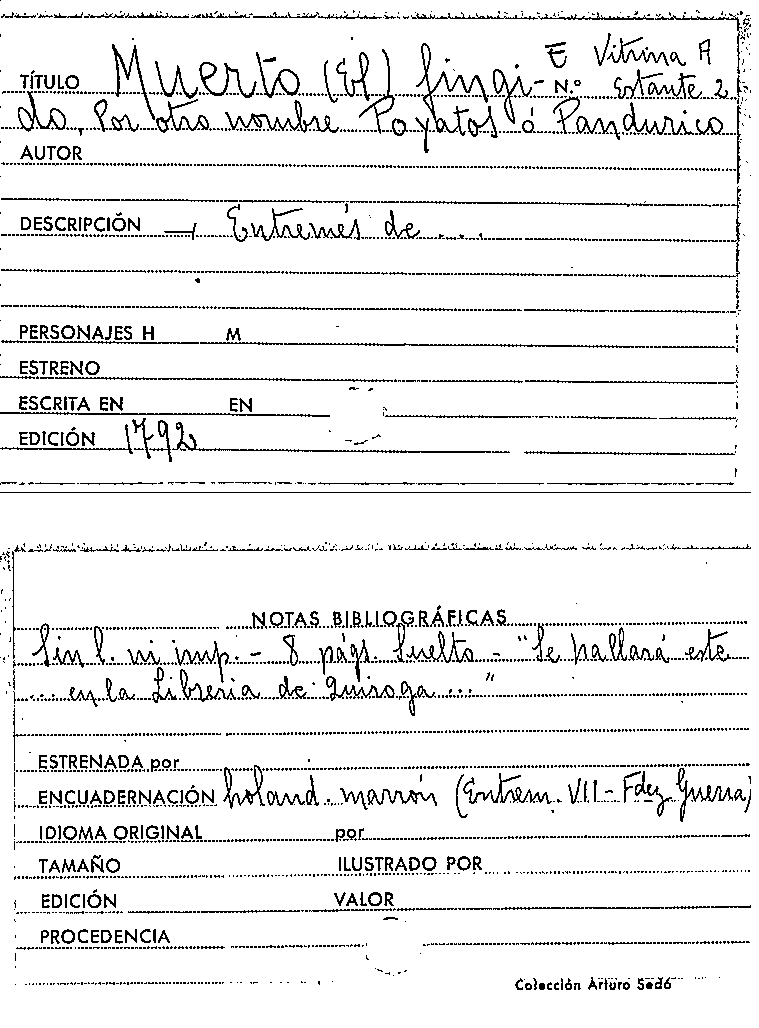 E Vitrina A
TÍTULO Muerto (El) fingi- N.º Estante 2
do, Por otro nombre Poyatos ó Pandurico
AUTOR
DESCRIPCIÓN — Entremés de ...
PERSONAJES H M
ESTRENO
ESCRITA EN EN
EDICIÓN 1792
NOTAS BIBLIOGRÁFICAS
Sin l. ni imp. - 8 págs. Suelto - "Se hallará este
... en la Libreria de Quiroga ..."
ESTRENADA por
ENCUADERNACIÓN holand. marrón (Entrem. VII - Fdez Guerra)
IDIOMA ORIGINAL por
TAMAÑO ILUSTRADO POR
EDICIÓN VALOR
PROCEDENCIA
Colección Arturo Sedó